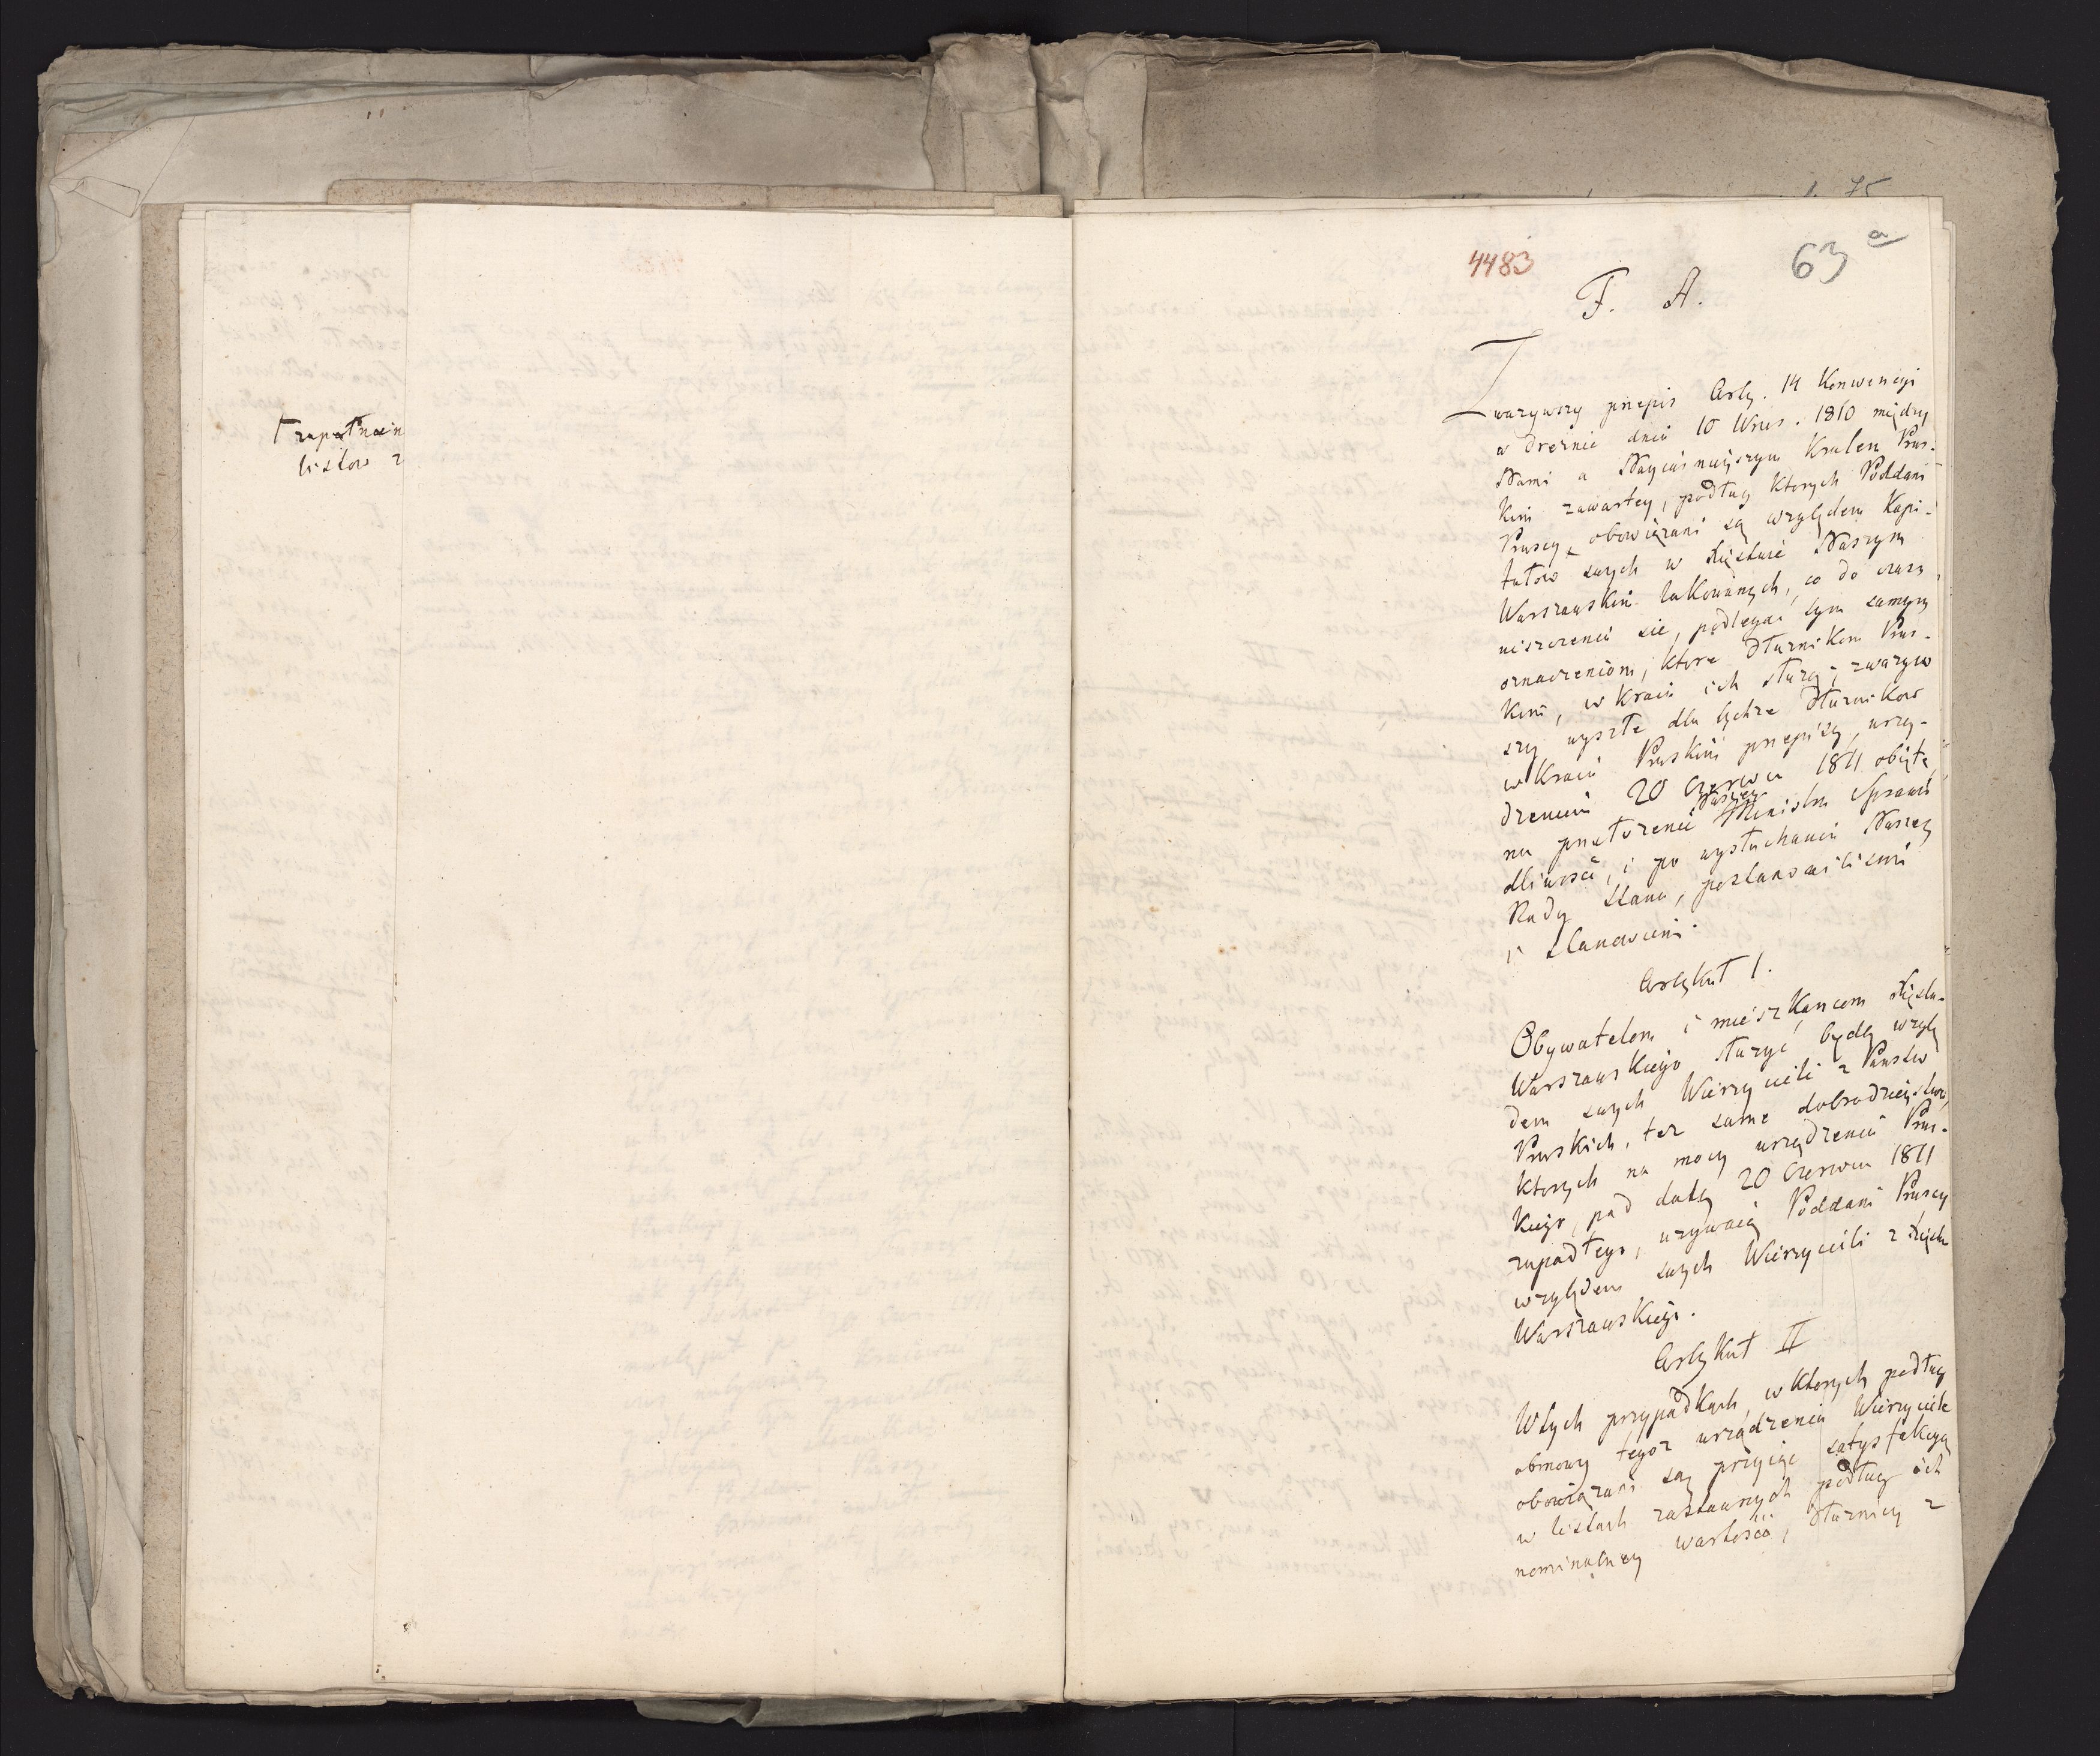 listow z
4483
63 a
F. A.
Zwazywszy przepis Arty. 14 Konwencyi
w Dreznie dnia 10 Wrzes. 1810 między
Nami a Nayiasnieyszym Krolem Prus-
kim zawartey, podług ktorych Poddani
Pruscy, obowiązani są względem Kapi-
tałow swych w Xięstwie Naszym
Warszawskim lokowanych, co do czasu
uiszczenia sie, podlegać tym samym
oznaczeniom, ktore Dłużnikom Prus-
kim, w Kraiu ich służą; zwazyw
szy wyszłe dla tychze Dłużnikow
w Kraiu Pruskim przepisy, urzą-
dzeniem 20 Czerwca 1811 obięte,
Naszego
na przełożenie Ministra Sprawie
dliwości, i po wysłuchaniu Naszey
Rady Stanu, postanowilismy
i stanowiemy.
Artykuł I.
Obywatelom i mieszkancom Xięstwa
Warszawskiego służyć będą wzglę
dem swych Wierzycieli z Panstw
Pruskich, też same dobrodzieystwa,
ktorych na mocy urządzenia Prus-
kiego, pod datą 20 Czerwca 1811
zapadłego, uzywaią Poddani Pruscy
względem swych Wierzycieli z Xięstwa
Warszawskiego.
Artykuł II
W tych przypadkach, w ktorych podług
obmowy tegoz urządzenia Wierzyciele
obowiązani są przyiąć satysfakcyą
w listach zastawnych podług ich
nominalney wartości, Dłużnicy z